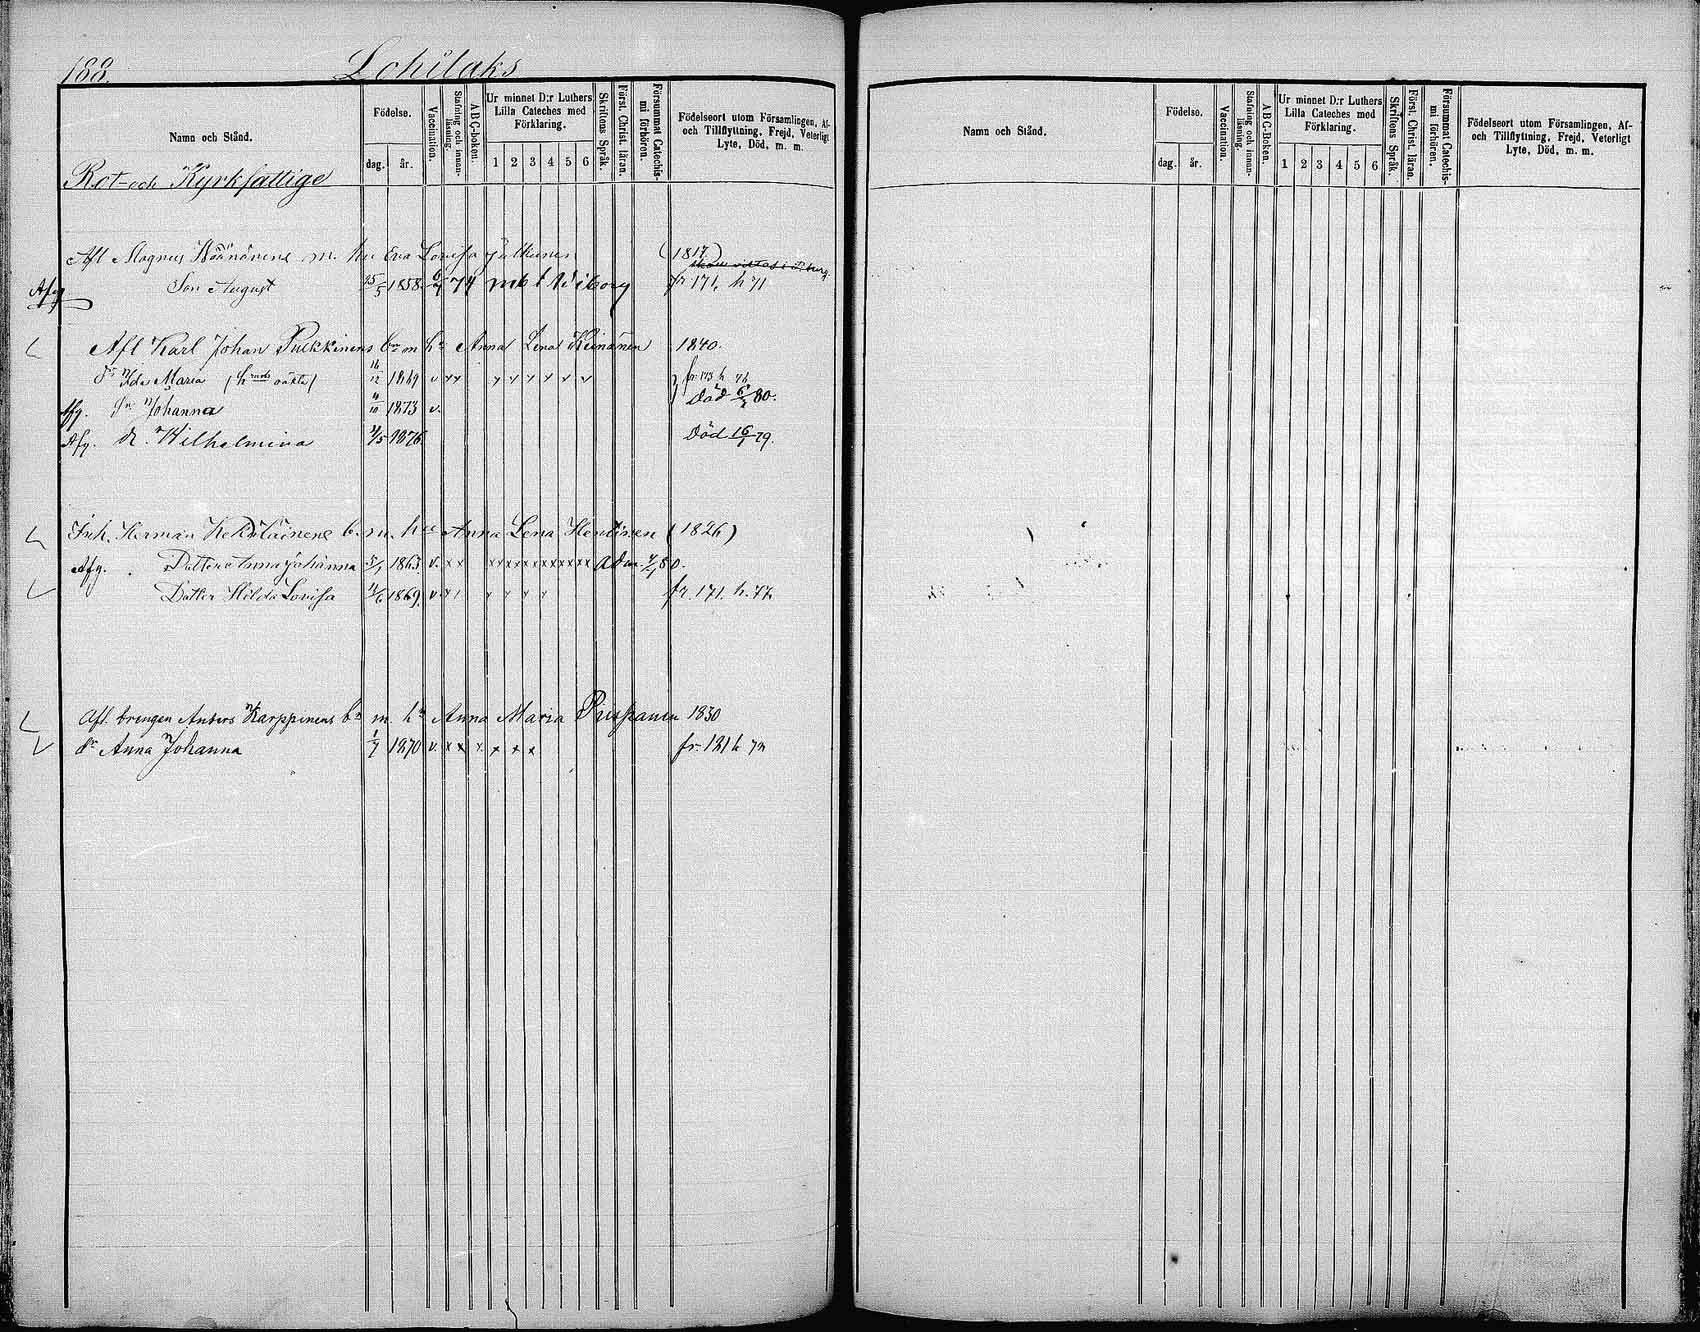 188.
Lohilaks
Namn och Stånd.
Födelse.
dag. år.
Vaccination.
Stafning och innan-läsning.
ABC-boken.
Ur minnet D:r Luthers
Lilla Cateches med
Förklaring.
1 2 3 4 5 6
Skriftens Språk.
Först. Christ. läran.
Försummat Catechis-
mi förhören.
Födelseort utom Församlingen, Af-
och Tillflyttning, Frejd, Veterligt
Lyte, Död, m. m.
Rot- och Kyrkfattige
Afl Magnus m. hu Eva Lovisa (1817)
Afg Son August 25/5 1858. 74 mb t Wiborg fr 171, h 71
Afl Karl Johan Pulkkinens m hu Anna Lena Keinänen 1840.
dr Ida Maria (hrads oäkta) 16/12 1869 v fr. 173 h 76
Afg. Sn Johanna 4/10 1873 v. Död 80.
Afg. d. Wilhelmina 1876 Död 16/1 79.
Inh. Herman m. hu Anna Lena (1826)
Afg. Dotter Anna Johanna 5/1 1863. v. x x x x x x x x x x x x Adm. 80.
Dotter Hilda Lovisa 1869. v fr. 171. h. 77
Afl. drengen Anders Karppinens m. hu Anna Maria 1830
dr Anna Johanna 1/7 1870 v. x x x x x x fr. 121 h 72
Namn och Stånd.
Födelse.
dag. år.
Vaccination.
Stafning och innan-läsning.
ABC-Boken.
Ur minnet D:r Luthers
Lilla Cateches med
Förklaring.
1 2 3 4 5 6
Skriftens Språk.
Först. Christ. läran.
Försummat Catechis-
mi förhören.
Födelseort utom Församlingen, Af-
och Tillflyttning, Frejd, Veterligt
Lyte, Död, m. m.